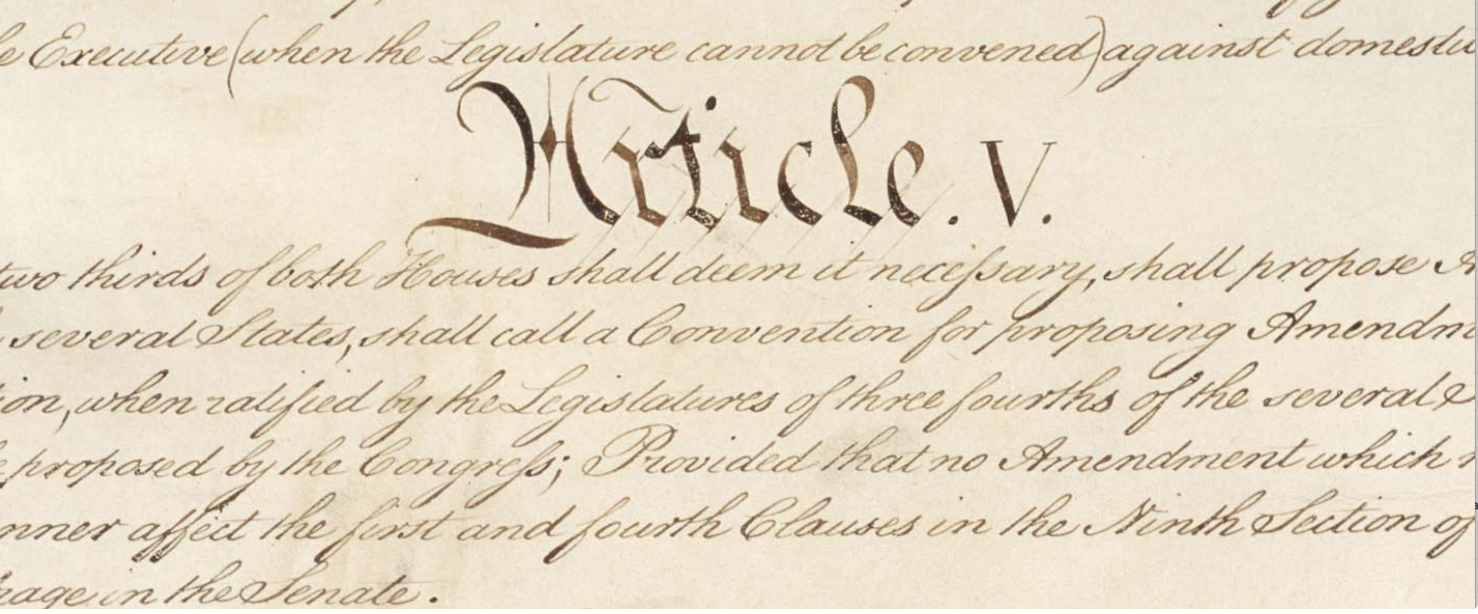 e Executive (when the Legislature cannot be convened) against domestic
Article. V.
two thirds of both Houses shall deem it neceſsary, shall propose A
several States, shall call a Convention for proposing Amendm
ion, when ratified by the Legislatures of three fourths of the several S
e proposed by the Congreſs; Provided that no Amendment which m
nner affect the first and fourth Clauses in the Ninth Section of
rage in the Senate.